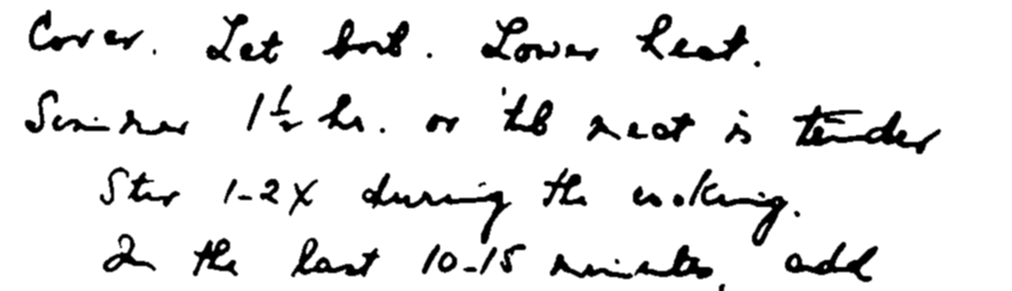 Cover. Let boil. Lower heat.
Simmer 1½ hr. or 'til meat is tender
Stir 1-2X during the cooking.
In the last 10-15 minutes, add